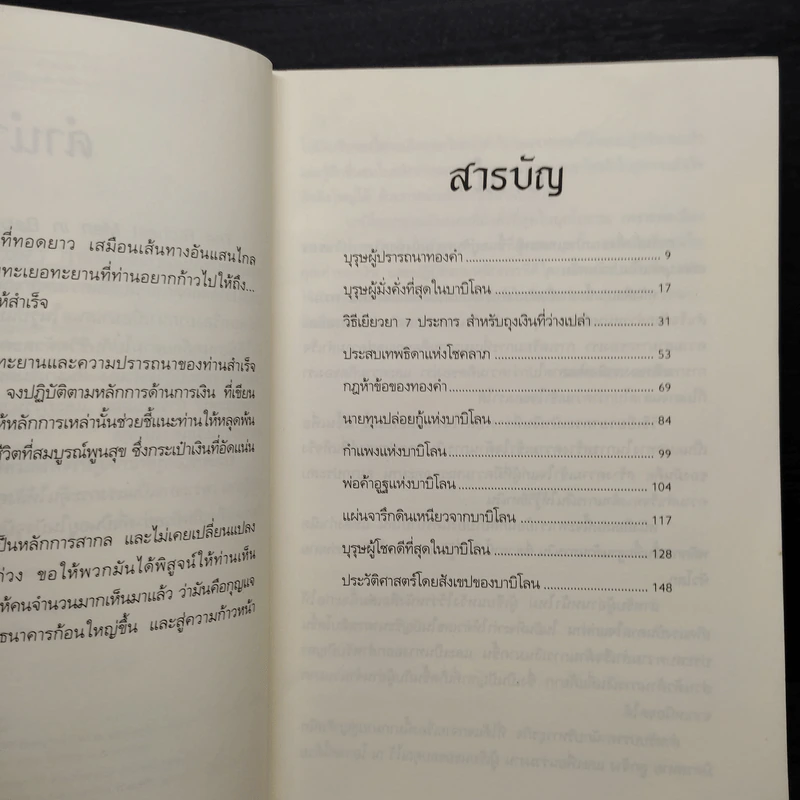 ที่ทอดยาว เสมือนเส้นทางอันแสนไกล
ทะเยอทะยานที่ท่านอยากก้าวไปให้ถึง...
ให้สำเร็จ
ทะยานและความปรารถนาของท่านสำเร็จ
จงปฏิบัติตามหลักการด้านการเงิน ที่เขียน
ให้หลักการเหล่านั้นช่วยชี้แนะท่านให้หลุดพ้น
ชีวิตที่สมบูรณ์พูนสุข ซึ่งกระเป๋าเงินที่อัดแน่น
เป็นหลักการสากล และไม่เคยเปลี่ยนแปลง
ขอให้พวกมันได้พิสูจน์ให้ท่านเห็น
ให้คนจำนวนมากเห็นมาแล้ว ว่ามันคือกุญแจ
ธนาคารก้อนใหญ่ขึ้น และสู่ความก้าวหน้า
สารบัญ
บุรุษผู้ปรารถนาทองคำ 9
บุรุษผู้มั่งคั่งที่สุดในบาบิโลน 17
วิธีเยียวยา 7 ประการ สำหรับถุงเงินที่ว่างเปล่า 31
ประสบเทพธิดาแห่งโชคลาภ 53
กฎห้าข้อของทองคำ 69
นายทุนปล่อยกู้แห่งบาบิโลน 84
กำแพงแห่งบาบิโลน 99
พ่อค้าอูฐแห่งบาบิโลน 104
แผ่นจารึกดินเหนียวจากบาบิโลน 117
บุรุษผู้โชคดีที่สุดในบาบิโลน 128
ประวัติศาสตร์โดยสังเขปของบาบิโลน 148